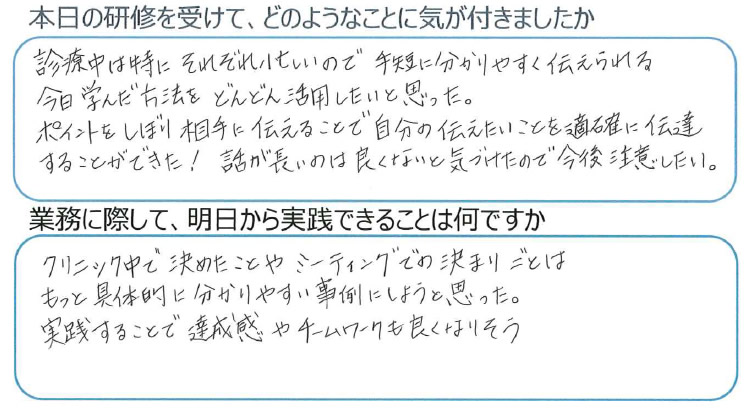 本日の研修を受けて、どのようなことに気が付きましたか
診療中は特にそれぞれ忙しいので手短に分かりやすく伝えられる
今日学んだ方法をどんどん活用したいと思った。
ポイントをしぼり相手に伝えることで自分の伝えたいことを適確に伝達
することができた! 話が長いのは良くないと気づけたので今後注意したい。
業務に際して、明日から実践できることは何ですか
クリニック中で決めたことやミーティングでの決まりごとは
もっと具体的に分かりやすい事例にしようと思った。
実践することで達成感やチームワークも良くなりそう